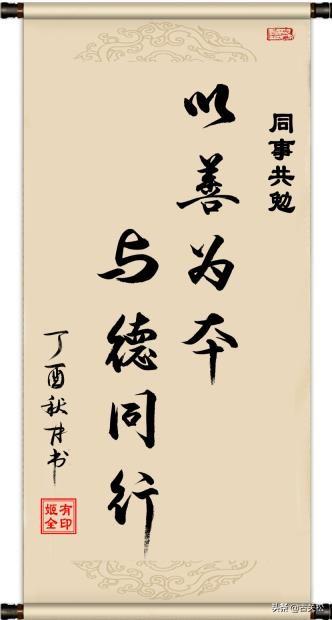 同事共勉
以善为本
与德同行
丁酉秋月书
姬全
有印
头条